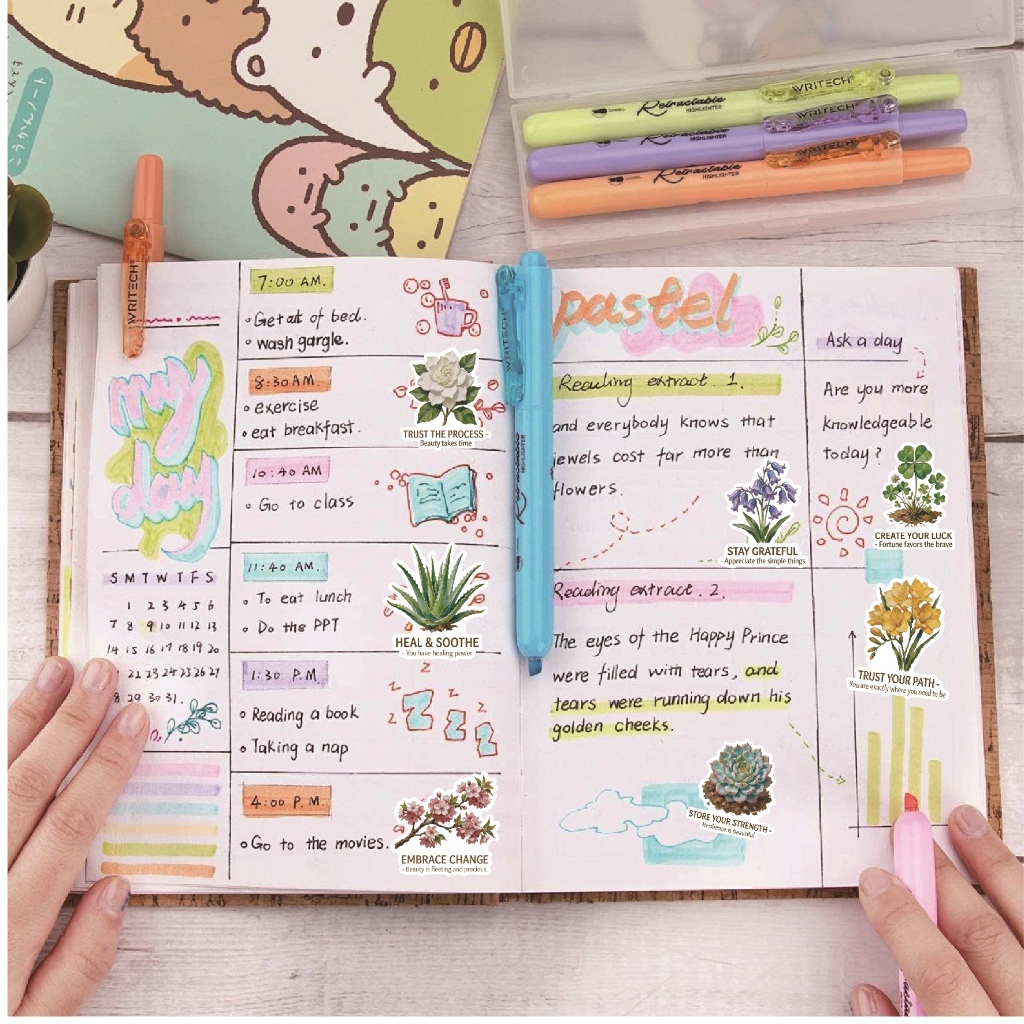 WRITECH®
Retractable
HIGHLIGHTER
WRITECH®
Retractable
HIGHLIGHTER
WRITECH®
Retractable
HIGHLIGHTER
WRITECH®
WRITECH®
HIGHLIGHTER
my
day
S M T W T F S
1 2 3 4 5 6
7 8 9 10 11 12 13
14 15 16 17 18 19 20
21 22 23 24 25 26 27
8 29 30 31.
7:00 AM.
Get out of bed.
wash gargle.
8:30 AM.
exercise
eat breakfast.
TRUST THE PROCESS -
Beauty takes time
10:40 AM
Go to class
11:40 AM.
To eat lunch
Do the PPT
HEAL & SOOTHE
- You have healing power
1:30 P.M.
Reading a book
Taking a nap
z
z
z
Z
Z
Z
4:00 P.M.
Go to the movies.
EMBRACE CHANGE
- Beauty is fleeting and precious.
pastel
Reading extract. 1.
and everybody knows that
jewels cost far more than
flowers.
STAY GRATEFUL
- Appreciate the simple things
Reading extract. 2.
The eyes of the Happy Prince
were filled with tears, and
tears were running down his
golden cheeks.
STORE YOUR STRENGTH -
Resilience is beautiful.
Ask a day
Are you more
knowledgeable
today?
CREATE YOUR LUCK
- Fortune favors the brave
TRUST YOUR PATH -
You are exactly where you need to be